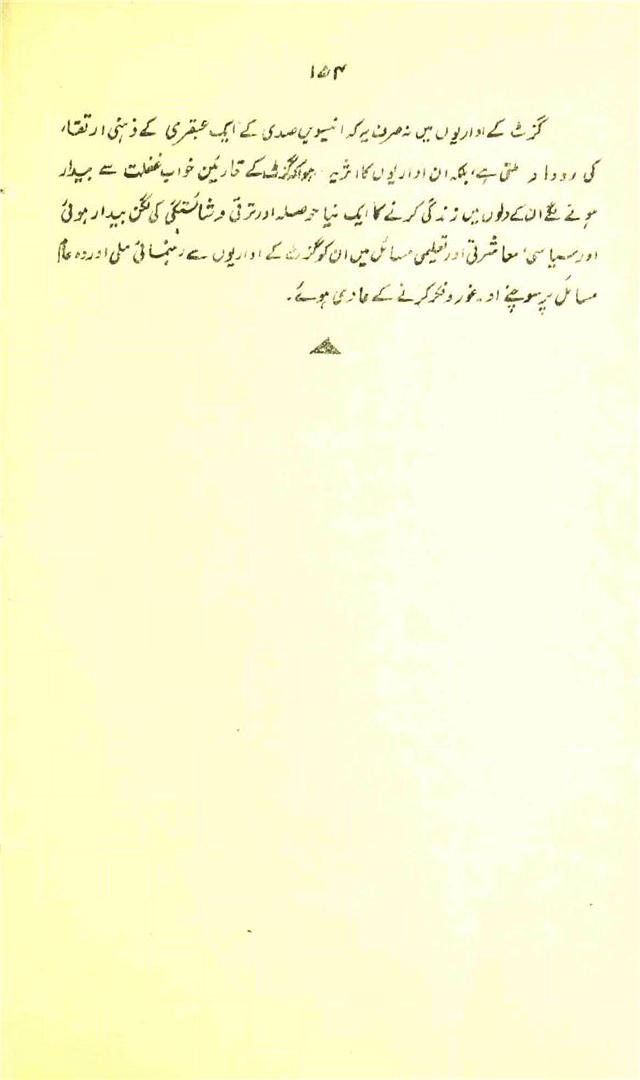 ۱۵۴
گزٹ کے اداریوں میں نہ صرف یہ کہ انیسویں صدی کے ایک عبقری کے ذہنی ارتقاء
کی روداد ملتی ہے، بلکہ ان اداریوں کا اثر یہ ہوا کہ گزٹ کے قارئین خواب غفلت سے بیدار
ہونے لگے ان کے دلوں میں زندگی کرنے کا ایک نیا حوصلہ اور ترقی و شائستگی کی لگن بیدار ہوئی
اور سیاسی، معاشرتی اور تعلیمی مسائل میں ان کو گزٹ کے اداریوں سے رہنمائی ملی اور وہ عام
مسائل پر سوچنے اور غور و فکر کرنے کے عادی ہوئے۔